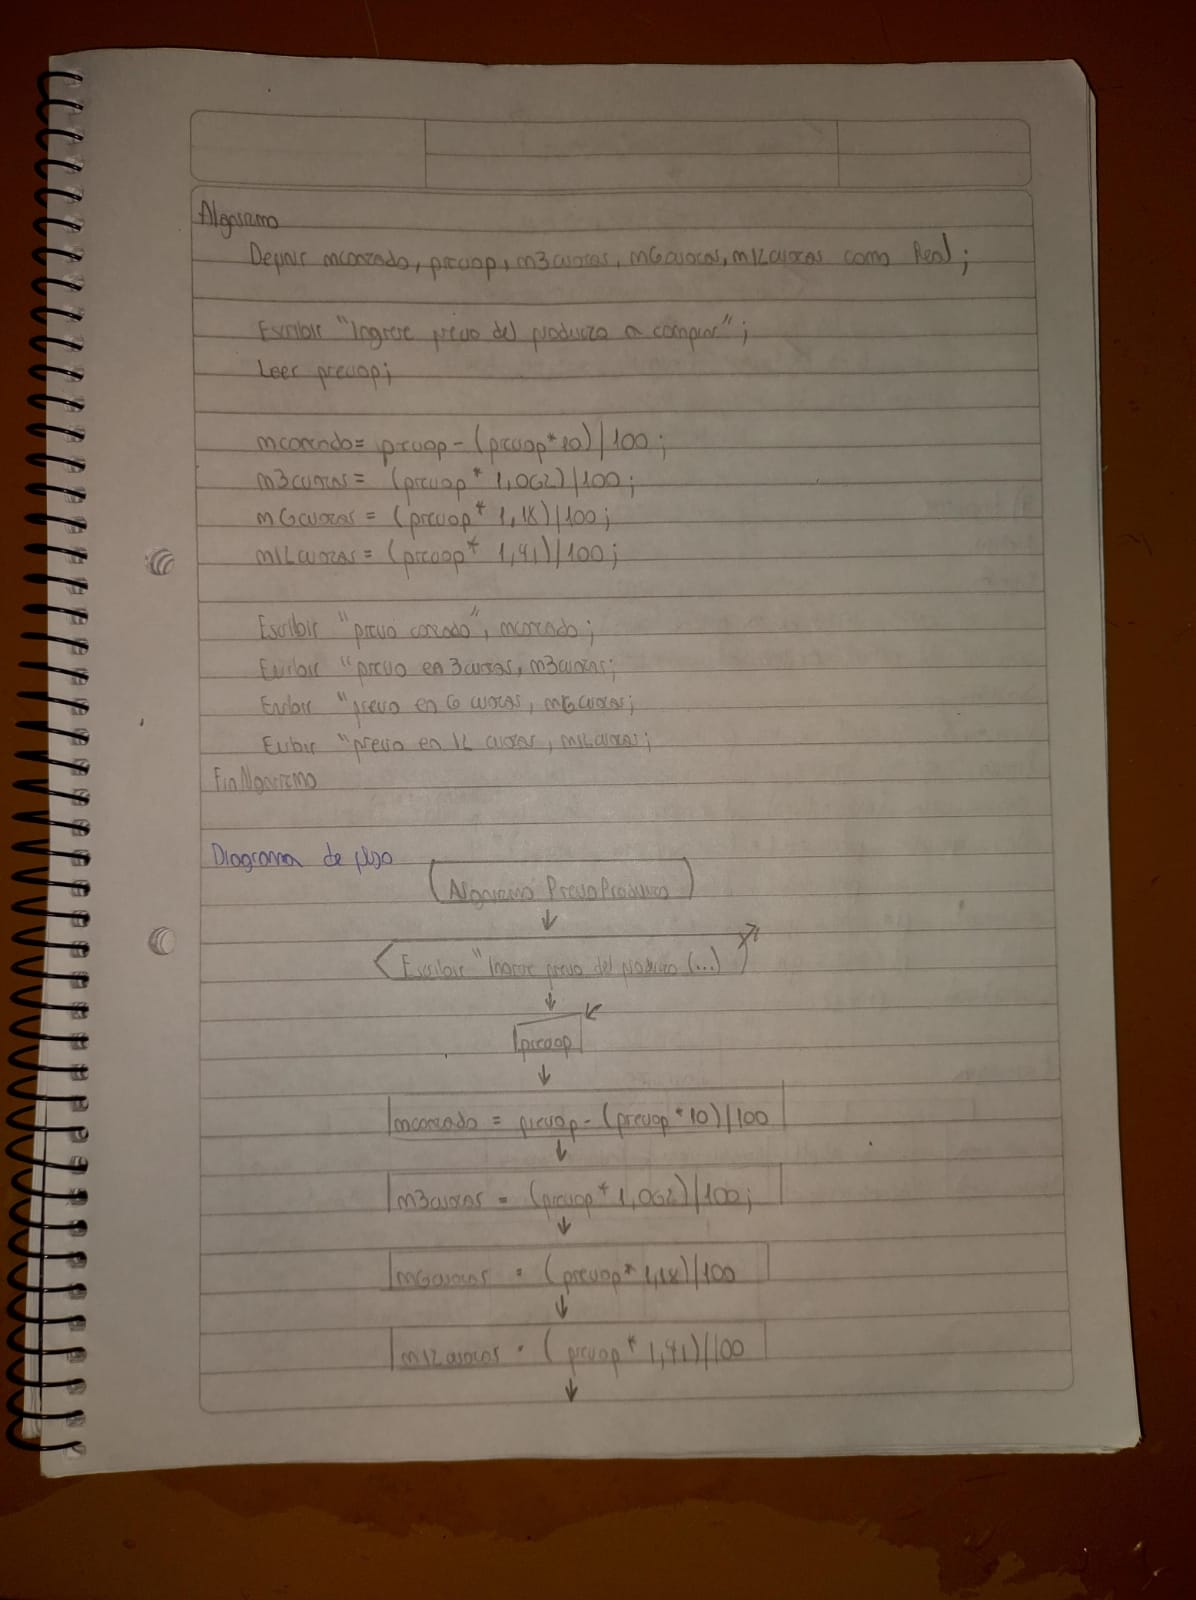 Algoritmo
Definir mcontado, preciop, m3cuotas, m6cuotas, m12cuotas como Real;
Escribir "Ingrese precio del producto a comprar";
Leer preciop;
mcontado= preciop - (preciop*10)/100;
m3cuotas= (preciop * 1,062)/100;
m6cuotas = (preciop * 1,18)/100;
m12cuotas = (preciop * 1,41)/100;
Escribir "precio contado", mcontado;
Escribir "precio en 3cuotas, m3cuotas;
Escribir "precio en 6 cuotas, m6cuotas;
Escribir "precio en 12 cuotas, m12cuotas;
FinAlgoritmo
Diagrama de flujo
Algoritmo PrecioProducto
Escribir "Ingrese precio del producto (...)
preciop
mcontado = preciop - (preciop * 10)/100
m3cuotas = (preciop * 1,062)/100;
m6cuotas = (preciop * 1,18)/100
m12cuotas = (preciop * 1,41)/100